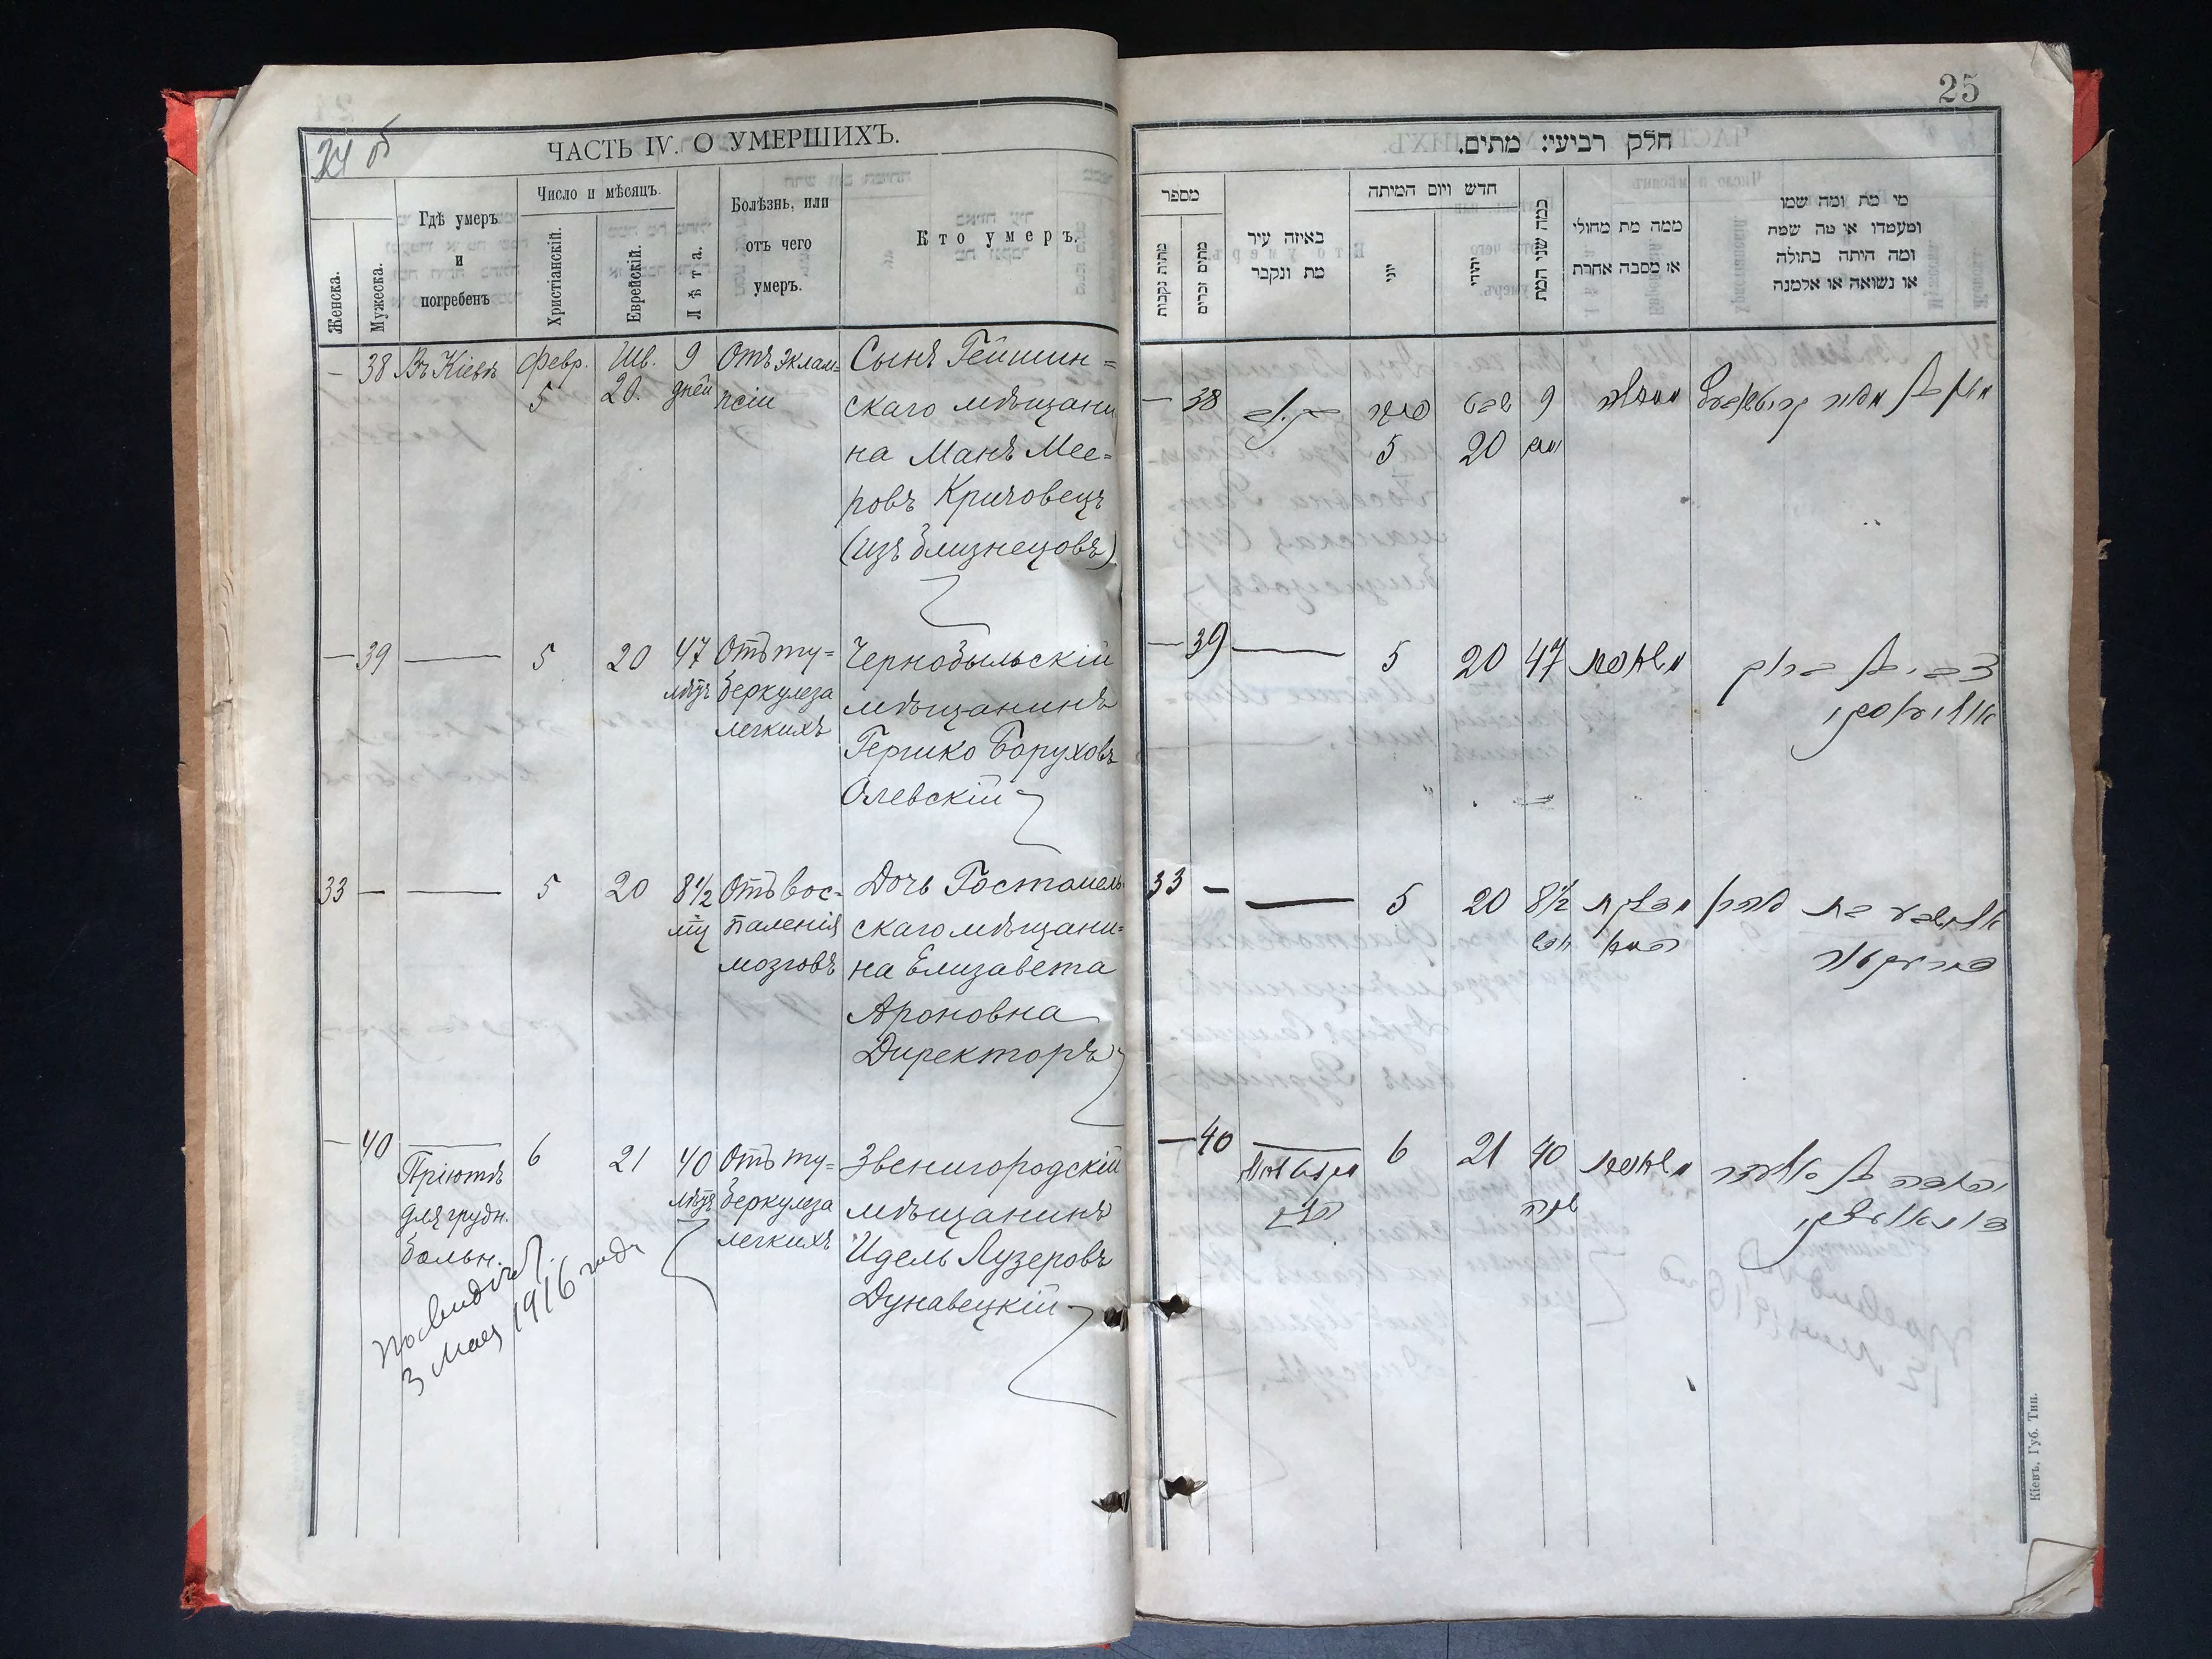 24 об
ЧАСТЬ IV. О УМЕРШИХЪ.
Женска.
Мужеска.
Гдѣ умеръ
и
погребенъ
Число и мѣсяцъ.
Христіанскій.
Еврейскій.
Лѣта.
Болѣзнь, или
отъ чего
умеръ.
Кто умеръ.
— 38 Въ Кіевѣ Февр. Шв. 9 Отъ эклам= Сынъ Гейшин=
5 20. дней псіи скаго мѣщани
на Манъ Мее=
ровъ Кричовецъ
(изъ близнецовъ)
— 39 — 5 20 47 Отъ ту= Чернобыльскій
лѣтъ беркулеза мѣщанинъ
легкихъ Гершко Боруховъ
Олевскій
33 — — 5 20 8½ Отъ вос= Дочь Гостомель
паленія скаго мѣщани=
мозговъ на Елизавета
Ароновна
Директоръ
— 40 — 6 21 40 Отъ ту= Звенигородскій
Пріютъ лѣтъ беркулеза мѣщанинъ
для грудн. легкихъ Идель Лузеровъ
больн. Дунавецкій
3 мая 1916 года
25
חלק רביעי: מתים.
מספר
מתות נקבות
מתים זכרים
באיזה עיר
מת ונקבר
חדש ויום המיתה
יוני
יהודי
כמה שני המת
ממה מת מחולי
או מסבה אחרת
מי מת ומה שמו
ומעמדו או מה שמה
ומה היתה בתולה
או נשואה או אלמנה
— 38 פברר שבט 9
5 20 ימים
— 39 — 5 20 47 צבי בן ברוך
33 — — 5 20 8½ אלישבע בת אהרן
דירעקטאר
— 40 — 6 21 40
שנה
Кіевъ, Губ. Тип.